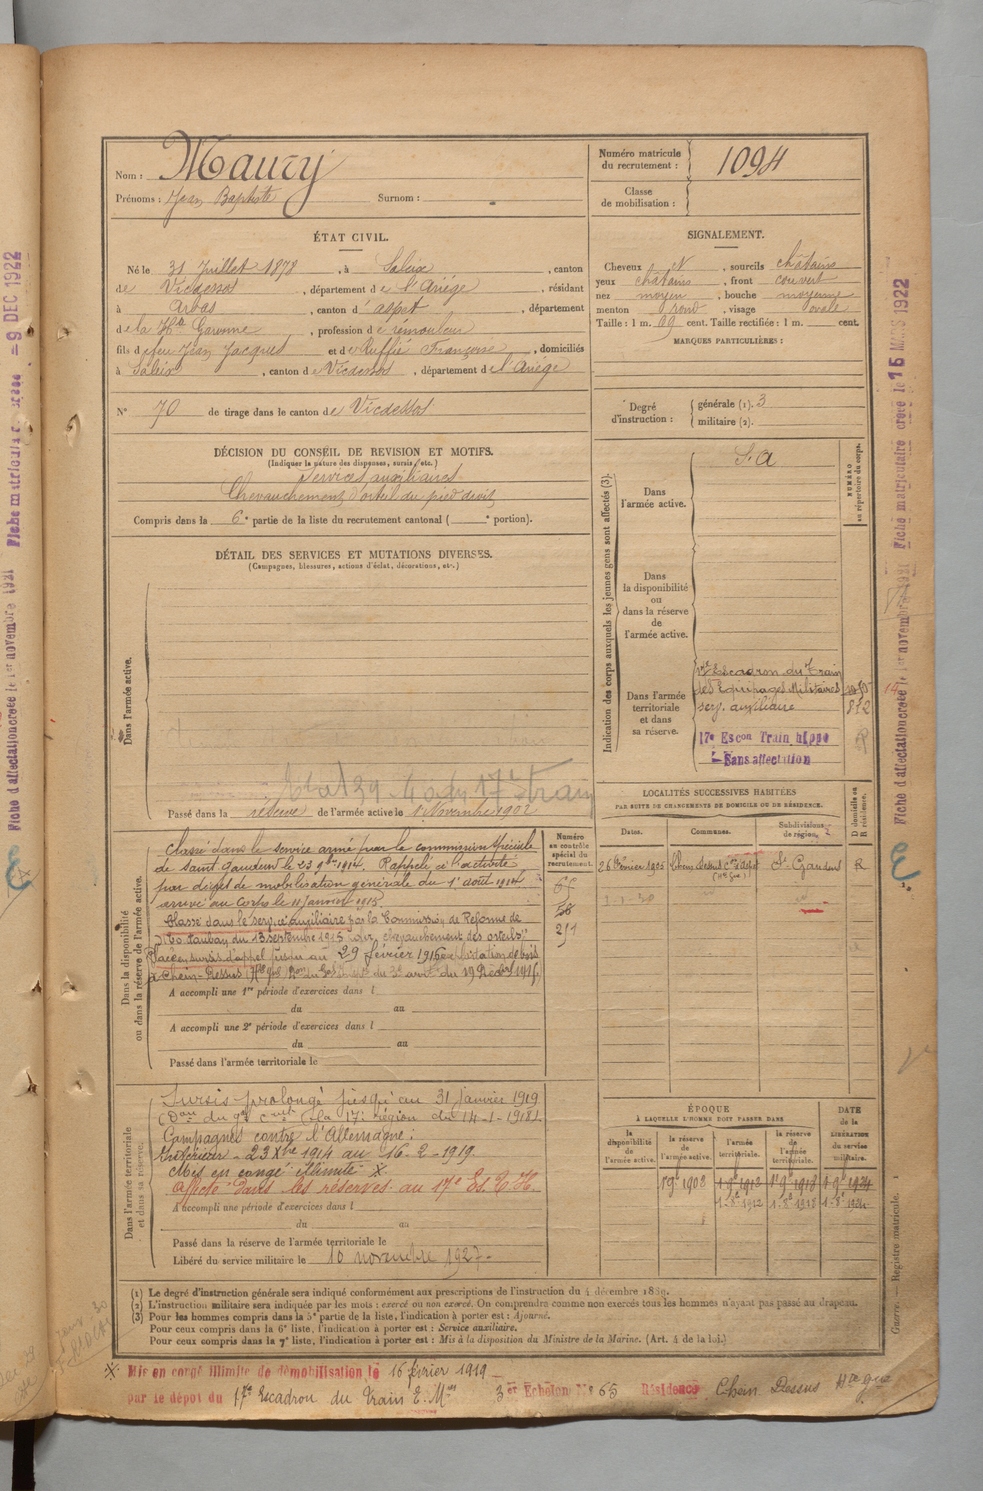 Nom : Maury
Prénoms : Jean Baptiste Surnom :
Numéro matricule du recrutement : 1094
Classe de mobilisation :
ÉTAT CIVIL.
Né le 31 Juillet 1878, à Saleix, canton
de Vicdessos, département de l'Ariège, résidant
à Arbas, canton d'aspet, département
de la Hte Garonne, profession de rémouleur
fils de feu Jean Jacques et de Ruffié Françoise, domiciliés
à Saleix, canton de Vicdessos, département de l'Ariège
N° 70 de tirage dans le canton de Vicdessos
SIGNALEMENT.
Cheveux N, sourcils châtains
yeux châtains, front couvert
nez moyen, bouche moyenne
menton rond, visage ovale
Taille : 1 m. 69 cent. Taille rectifiée : 1 m. cent.
MARQUES PARTICULIÈRES :
Degré d'instruction : générale (1). 3
militaire (2).
DÉCISION DU CONSEIL DE REVISION ET MOTIFS.
(Indiquer la nature des dispenses, sursis, etc.)
Services auxiliaires
Chevauchement d'orteil du pied droit
Compris dans la 6e partie de la liste du recrutement cantonal ( e portion).
DÉTAIL DES SERVICES ET MUTATIONS DIVERSES.
(Campagnes, blessures, actions d'éclat, décorations, etc.)
Dans l'armée active.
Passé dans la réserve de l'armée active le 1 Novembre 1902
Indication des corps auxquels les jeunes gens sont affectés (3).
Dans l'armée active.
S. A
NUMÉRO au répertoire du corps.
Dans la disponibilité ou dans la réserve de l'armée active.
Dans l'armée territoriale et dans sa réserve.
Escadron du Train
des Equipages Militaires
serv. auxiliaire
812
17e Escon Train hippo
Sans affectation
LOCALITÉS SUCCESSIVES HABITÉES
PAR SUITE DE CHANGEMENTS DE DOMICILE OU DE RÉSIDENCE.
Dates. Communes. Subdivisions de région. D domicile ou R résidence.
26 Février 1905 Chein Dessus con d'aspet (Hte Gne) St Gaudens R
1-1-30
Dans la disponibilité ou dans la réserve de l'armée active.
Numéro au contrôle spécial du recrutement.
Classé dans le service armé par la commission spéciale
de Saint Gaudens le 23 9bre 1914. Rappelé à l'activité
par décret de mobilisation générale du 1er août 1914
arrivé au corps le 11 janvier 1915.
Classé dans le service auxiliaire par la Commission de Réforme de
Montauban du 13 septembre 1915 pour chevauchement des orteils
Placé en sursis d'appel jusqu'au 29 février 1916 exploitation de bois
à Chein-Dessus
A accompli une 1re période d'exercices dans l
du au
A accompli une 2e période d'exercices dans l
du au
Passé dans l'armée territoriale le
Dans l'armée territoriale et dans sa réserve.
Sursis prolongé jusqu'au 31 janvier 1919
Campagnes contre l'Allemagne :
Intérieur - 23 Xbre 1914 au 16-2-1919.
Mis en congé illimité X
Affecté dans les réserves au 17e Es. T. H.
A accompli une période d'exercices dans l
du au
Passé dans la réserve de l'armée territoriale le
Libéré du service militaire le 10 novembre 1927.
ÉPOQUE
À LAQUELLE L'HOMME DOIT PASSER DANS
la disponibilité de l'armée active. la réserve de l'armée active. l'armée territoriale. la réserve de l'armée territoriale. DATE de la LIBÉRATION du service militaire.
(1) Le degré d'instruction générale sera indiqué conformément aux prescriptions de l'instruction du 4 décembre 1889.
(2) L'instruction militaire sera indiquée par les mots : exercé ou non exercé. On comprendra comme non exercés tous les hommes n'ayant pas passé au drapeau.
(3) Pour les hommes compris dans la 5e partie de la liste, l'indication à porter est : Ajourné.
Pour ceux compris dans la 6e liste, l'indication à porter est : Service auxiliaire.
Pour ceux compris dans la 7e liste, l'indication à porter est : Mis à la disposition du Ministre de la Marine. (Art. 4 de la loi.)
Mis en congé illimité de démobilisation le 16 février 1919
par le dépôt du 17e Escadron du Train E. Mres 3e Echelon N° 65 Résidence Chein Dessus Hte Gne
Guerre. — Registre matricule.
Fiche d'affectation créée le 1er novembre 1921
Fiche matriculaire créée le 15 MARS 1922
Fiche d'affectation créée le 1er novembre 1921
- 9 DEC 1922